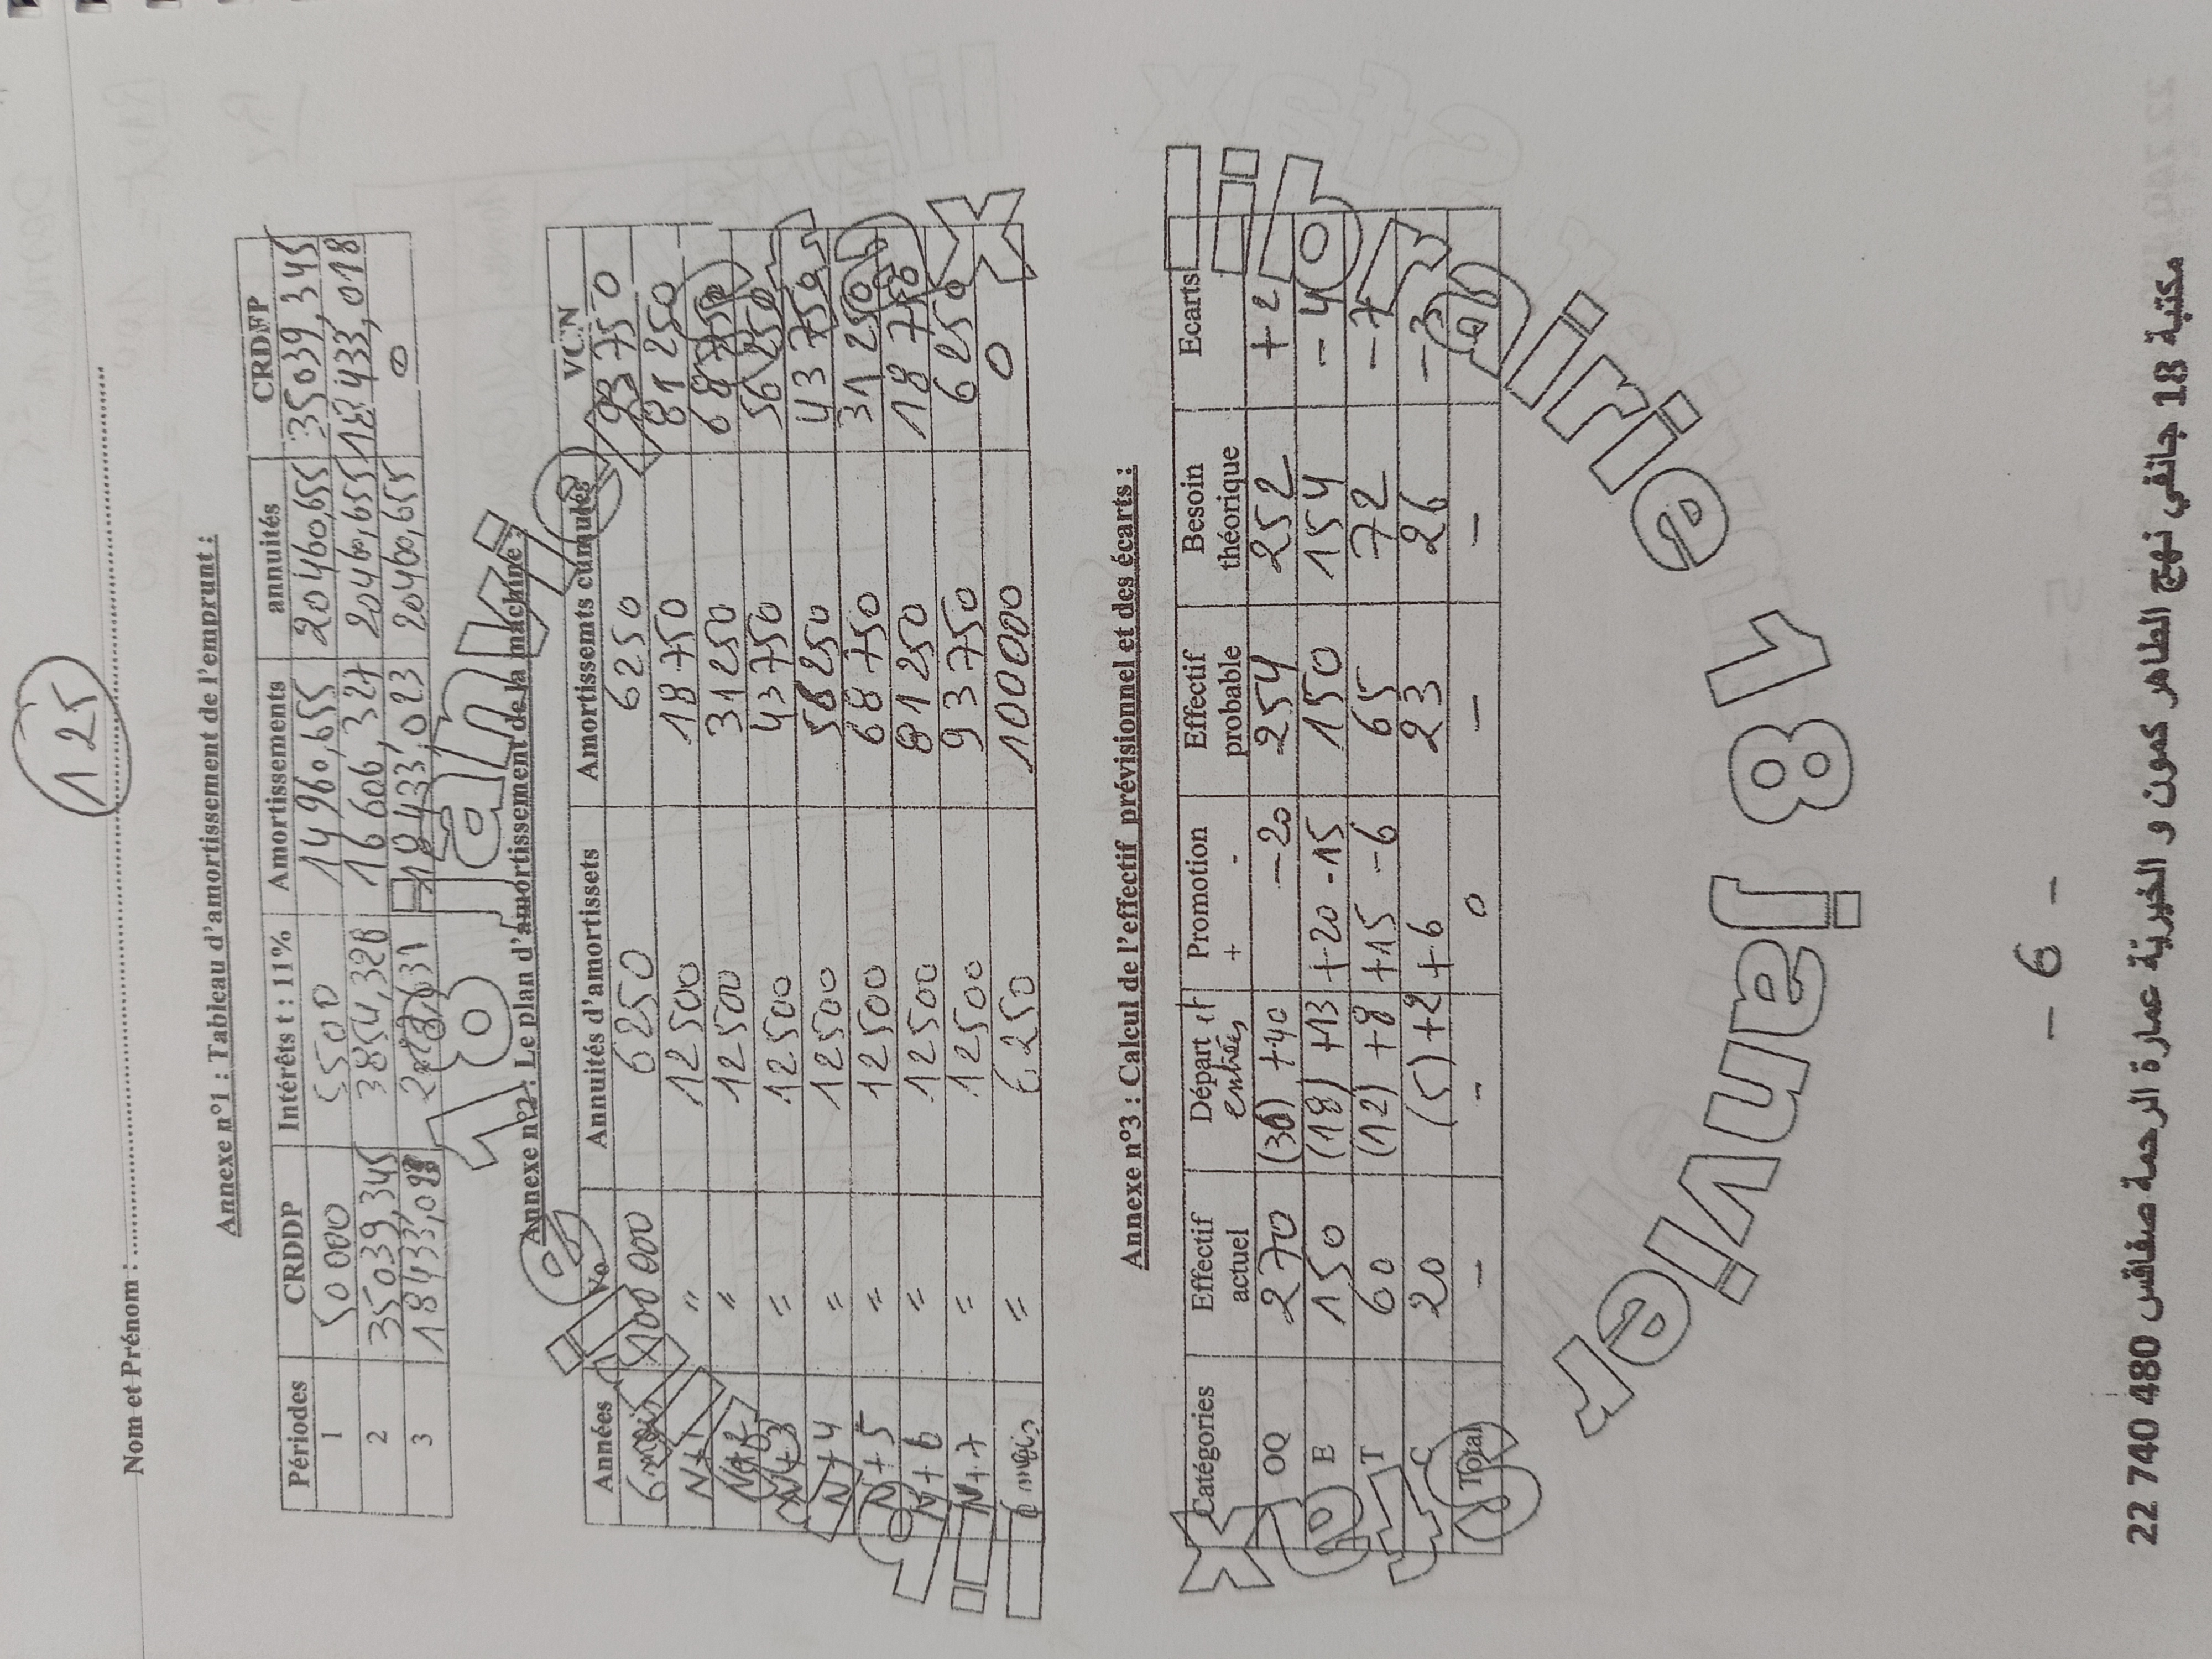 125
Nom et Prénom : ........................................
Annexe n°1 : Tableau d'amortissement de l'emprunt :
Périodes CRDDP Intérêts t : 11% Amortissements annuités CRDFP
1 50 000 5500 14960,655 20460,655 35039,345
2 35039,345 3854,328 16606,327 20460,655 18433,018
3 18433,018 18433,023 20460,655 0
Annexe n°2 : Le plan d'amortissement de la machine :
Années Vo Annuités d'amortissets Amortissemts cumulés VCN
6 mois 100 000 6250 6250 93750
N+1 " 12500 18750 81250
N+2 " 12500 31250 68750
N+3 " 12500 43750 56250
N+4 " 12500 56250 43750
N+5 " 12500 68750 31250
N+6 " 12500 81250 18750
N+7 " 12500 93750 6250
6 mois " 6250 100000 0
Annexe n°3 : Calcul de l'effectif prévisionnel et des écarts :
Catégories Effectif actuel Départ et entrées Promotion + - Effectif probable Besoin théorique Ecarts
OQ 270 (36) +40 -20 254 252 +2
E 150 (18) +13 +20 -15 150 154 -4
T 60 (12) +8 +15 -6 65 72 -7
C 20 (5) +2 +6 23 26 -3
Total - - 0 - -
librairie 18 Janvier sfax
librairie 18 Janvier sfax
- 6 -
مكتبة 18 جانفي نهج الطاهر كمون و الخيرية عمارة الرحمة صفاقس 480 740 22